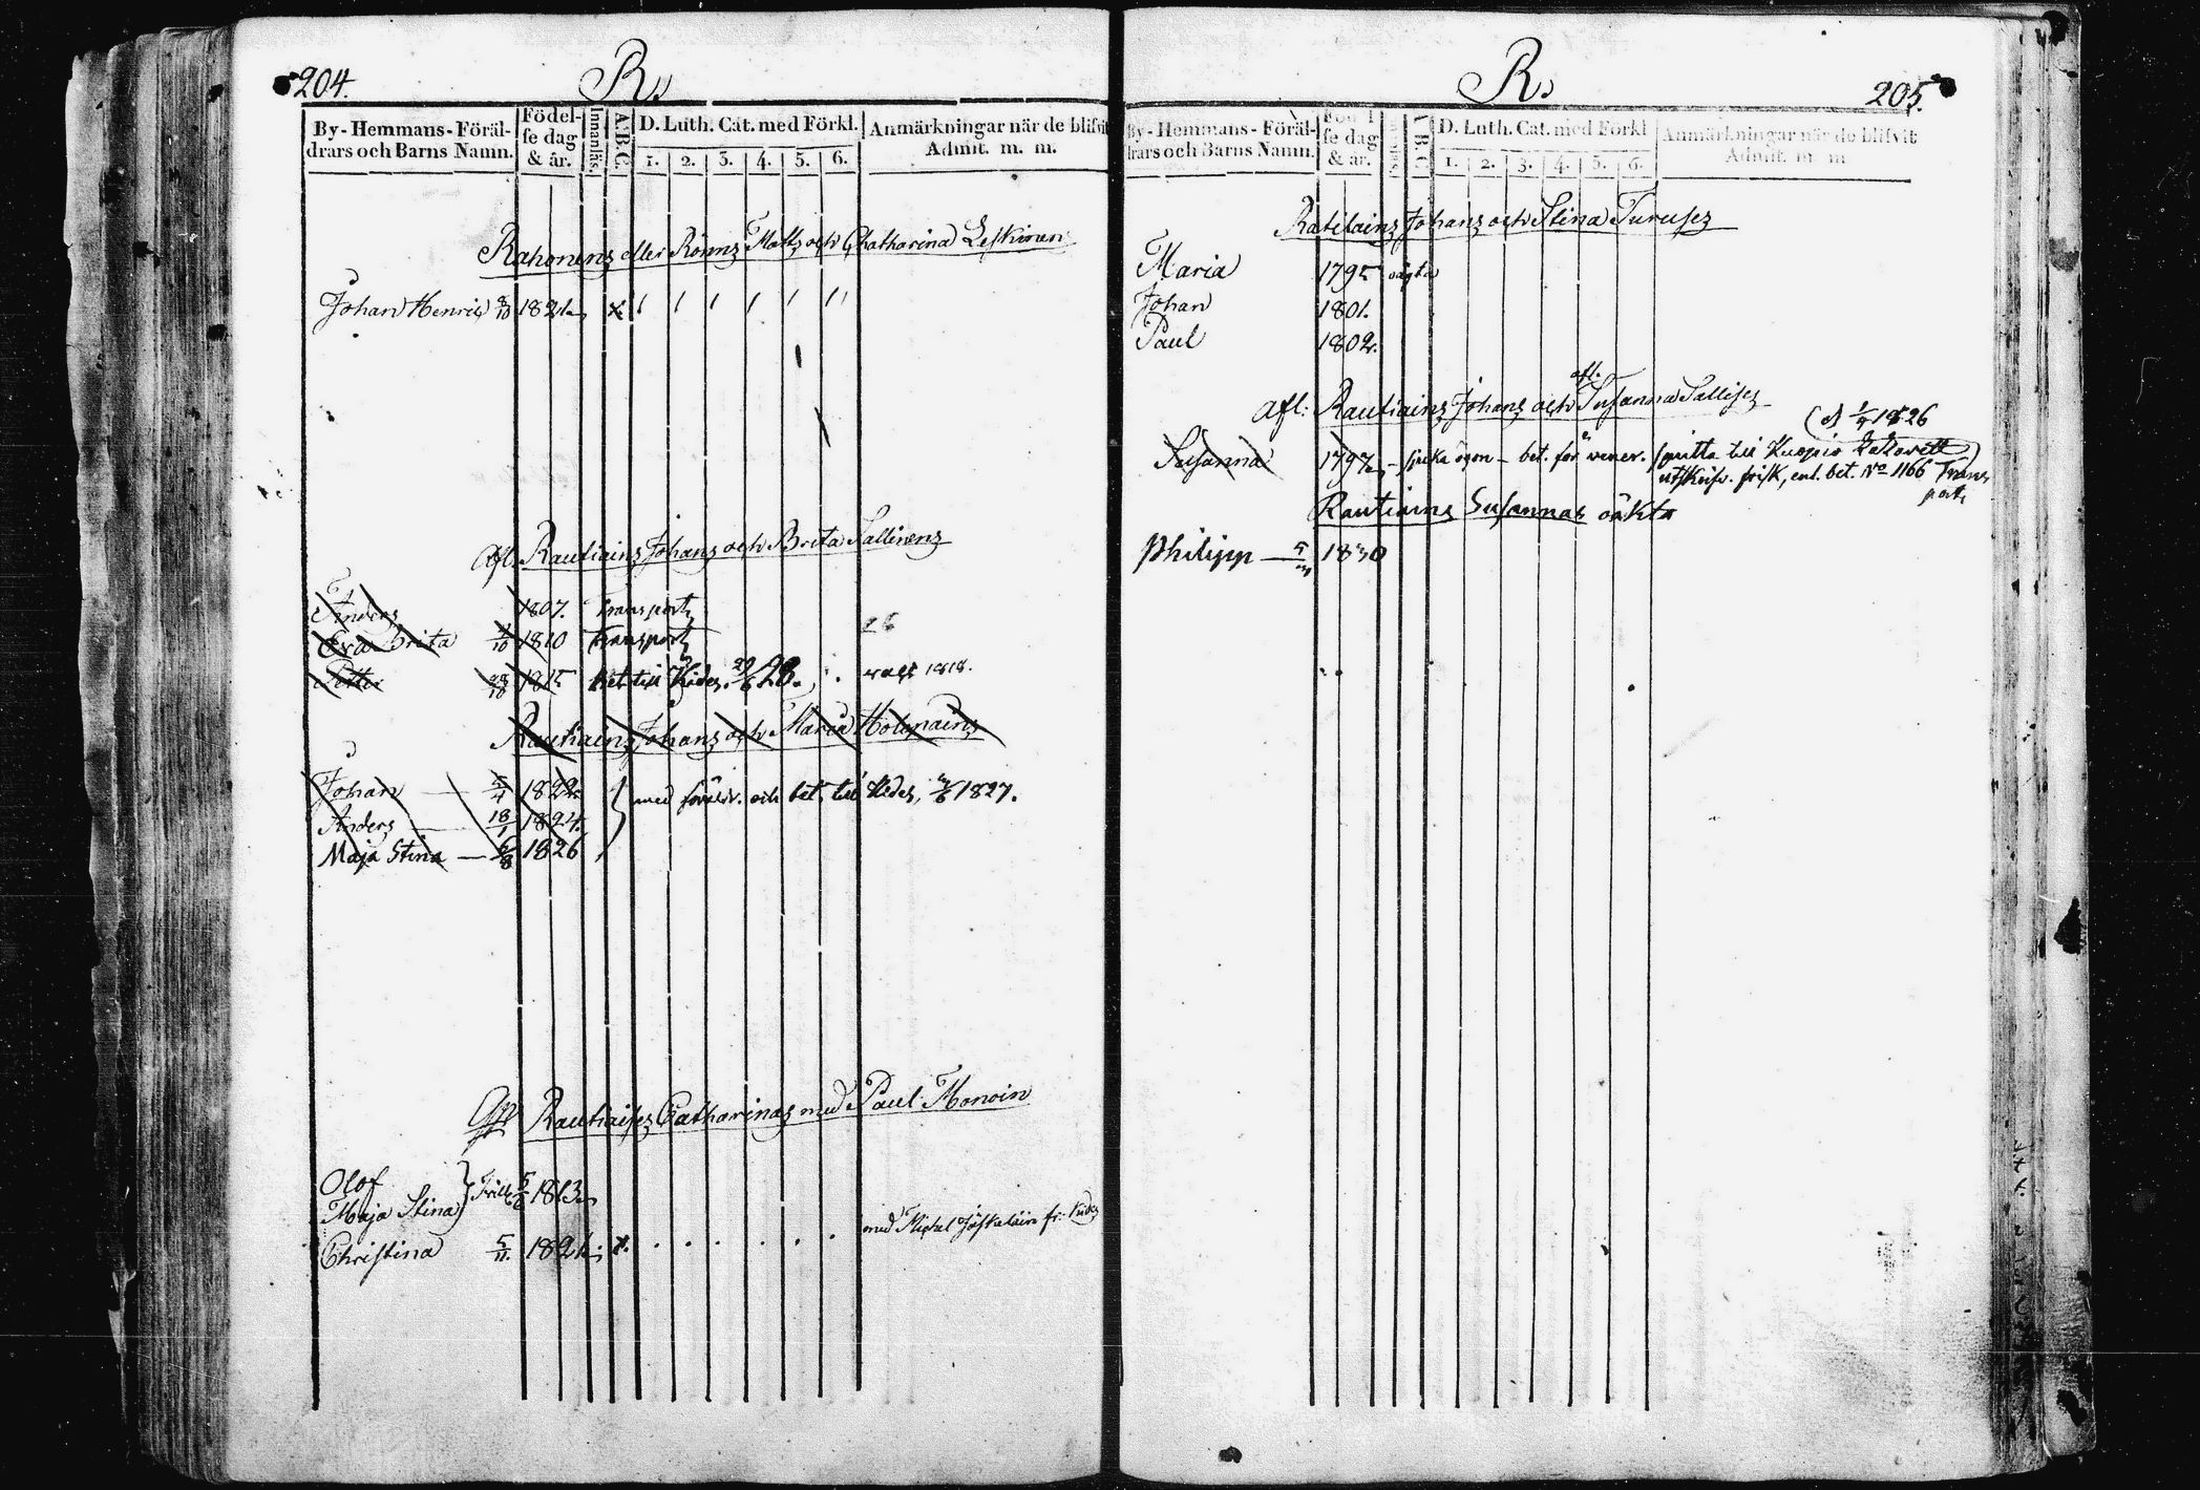 204.
R.
By-Hemmans-Föräl-
drars och Barns Namn.
Födel-
se dag
& år.
Innanläs.
A.B.C.
D. Luth. Cat. med Förkl.
1. 2. 3. 4. 5. 6.
Anmärkningar när de blifvit
Admit. m. m.
Rahonens eller Rönns Matts och Chatharina Leskinen
Johan Henric 8/10 1821 x
Afl. Rautiains Johans och Brita Sallinens
Anders 1807. Transport
Eva Brita 1810 Transport
Petter 1815 bet. till Kides 28.
Rautiains Johans och Maria Holopains
Johan 5/4 1822
med föräldr. och bet. till Kides, 1827.
Anders 18/1 1824.
Maja Stina 6/8 1826
Rautiaises Catharinas med Paul Monoin
Olof
Maja Stina 1813
Christina 5/11. 1821 x.
med Michel Jäskeläin fr. Kides
R.
205.
By-Hemmans-Föräl-
drars och Barns Namn.
se dag
& år.
A.B.C.
D. Luth. Cat. med Förkl
1. 2. 3. 4. 5. 6.
Anmärkningar när de blifvit
Admit. m. m
Johans och Stina Turuses
Maria 1795
Johan 1801.
Paul 1802.
Afl: Rautiains Johans och afl. Susanna Sallises
1826
Susanna 1797 sjuka ögon - bet. för vener. smitta till Kuopio Lazarett
utskrifv. frisk, enl. bet. No 1166 Trans
port
Rautiains Susannas oäkta
Philipp 1830